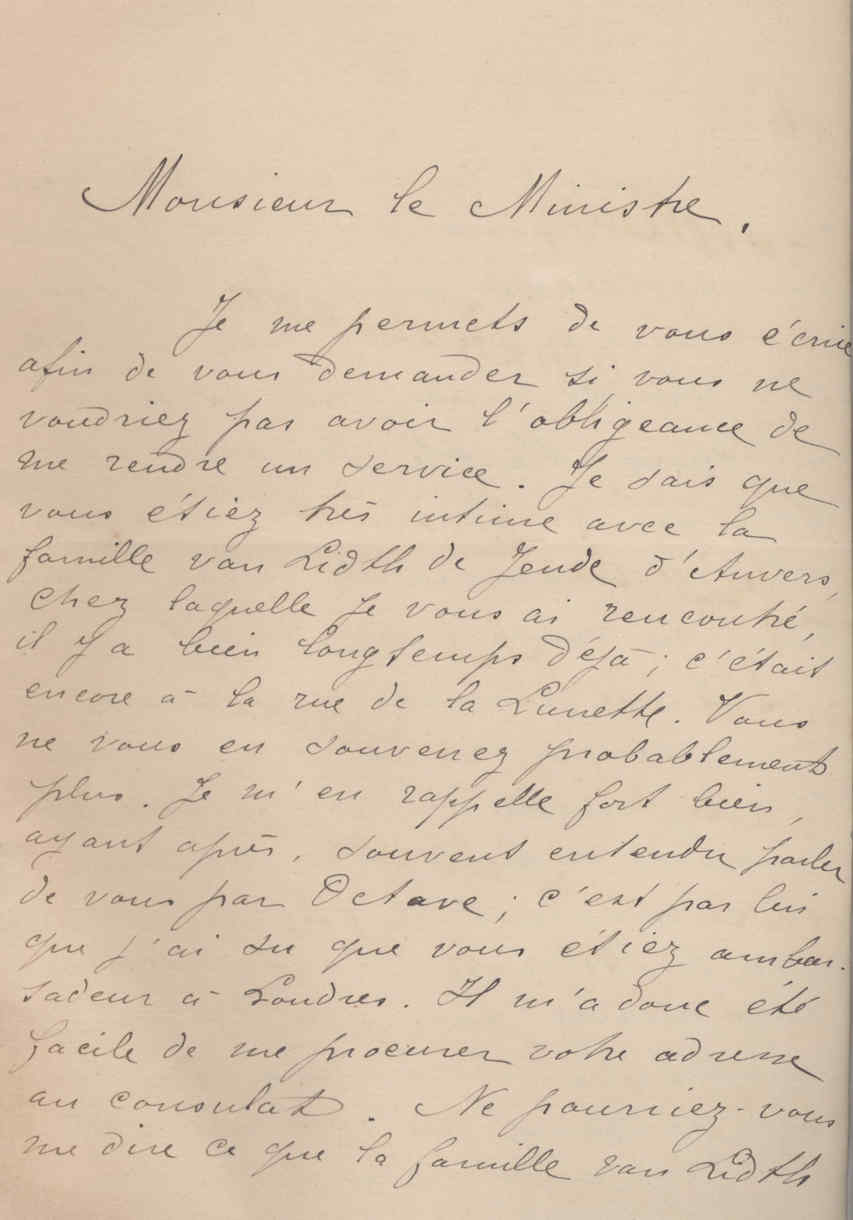 Monsieur le Ministre,
Je me permets de vous écrire
afin de vous demander si vous ne
voudriez pas avoir l'obligeance de
me rendre un service. Je sais que
vous étiez très intime avec la
famille van Lidth de Jeude d'Anvers,
chez laquelle je vous ai rencontré,
il y a bien longtemps déjà; c'était
encore à la rue de la Lunette. Vous
ne vous en souvenez probablement
plus. Je m'en rappelle fort bien,
ayant après, souvent entendu parler
de vous par Octave; c'est par lui
que j'ai su que vous étiez ambas-
sadeur à Londres. Il m'a donc été
facile de me procurer votre adresse
au consulat. Ne pourriez-vous
me dire ce que la famille van Lidth